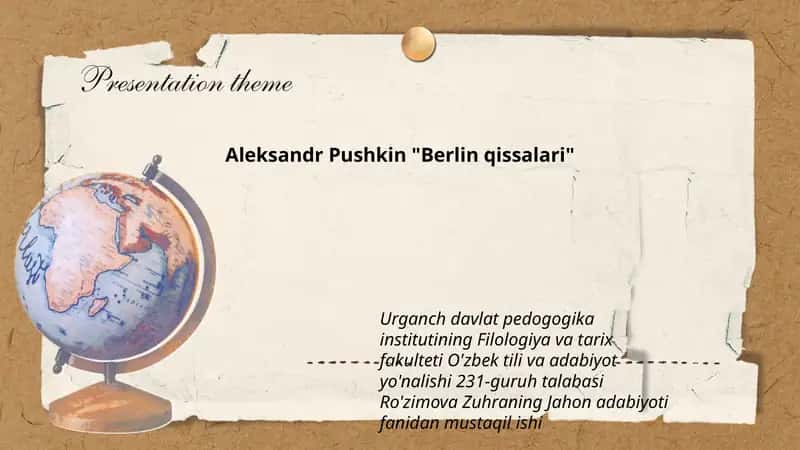 Presentation theme
Aleksandr Pushkin "Berlin qissalari"
Urganch davlat pedogogika
institutining Filologiya va tarix
fakulteti O'zbek tili va adabiyot
yo'nalishi 231-guruh talabasi
Ro'zimova Zuhraning Jahon adabiyoti
fanidan mustaqil ishi